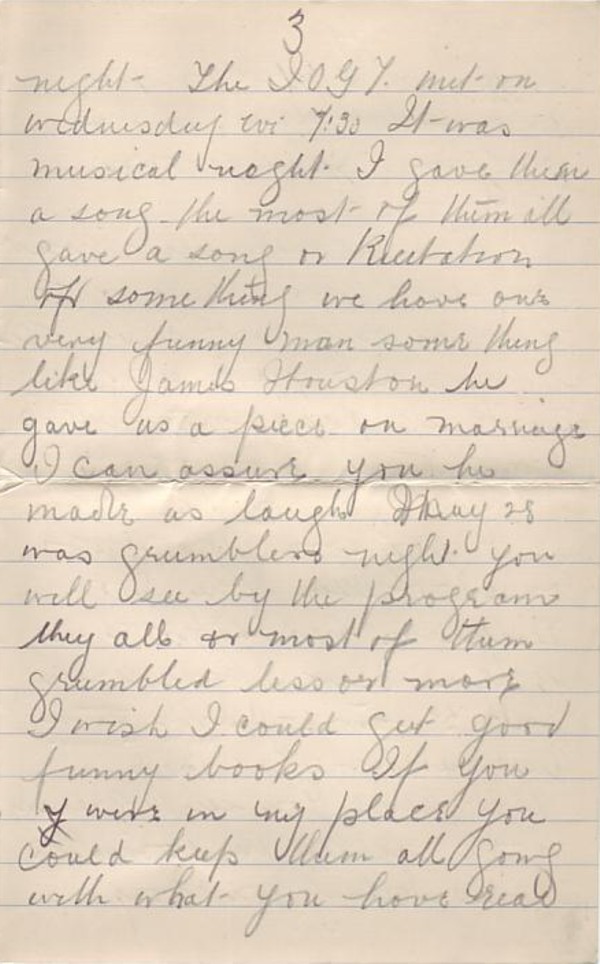 3
night- The I O G T. met on
wednesday evi 7:30 It was
musical naght. I gave them
a song the most of them all
gave a song or Recetation
or something we have one
very funny man some thing
like James Houston he
gave us a piece on marriage
I can assure you he
made us laugh May 28
was grumblers night. you
will see by the program
they all or most of them
grumbled less or more
I wish I could get good
funny books If you
were in my place you
could keep them all going
with what you have read